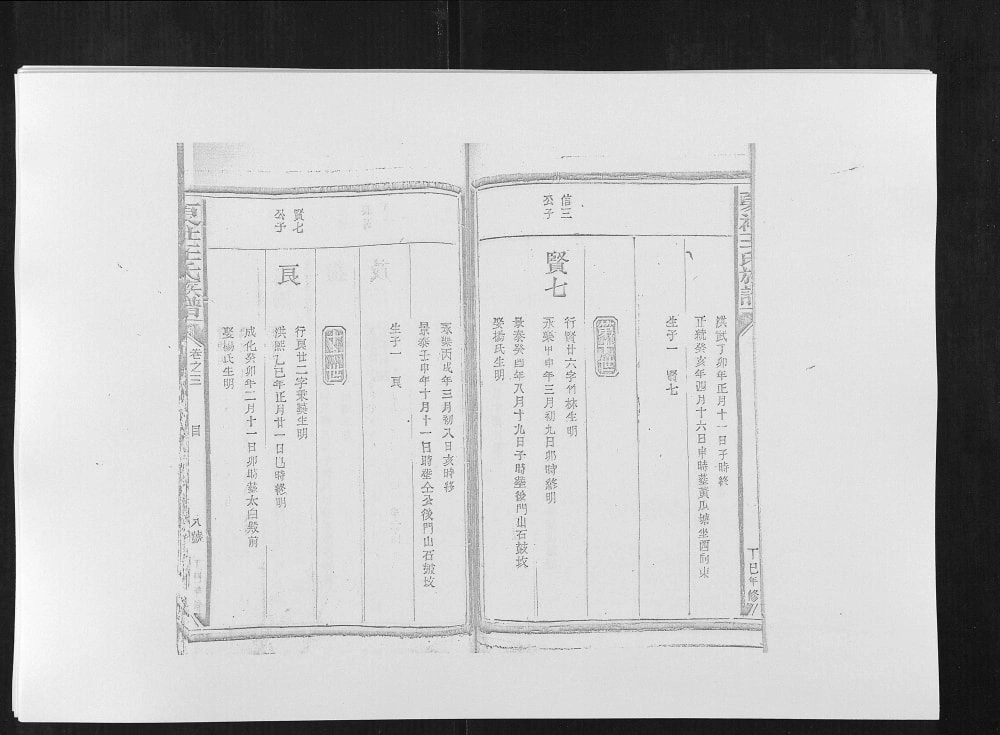 王氏族譜
丁巳年修
洪武丁卯年正月十一日子時終
正統癸亥年四月十六日申時葬黃瓜塘坐酉向東
生子一 賢七
信三
公子
賢七
行賢廿六字竹林生明
永樂甲申年三月初九日卯時終明
景泰癸酉年八月十九日子時葬後門山石鼓坟
娶楊氏生明
永樂丙戌年三月初八日亥時終
景泰壬申年十月十一日時葬仝公後門山石鼓坟
生子一 良
賢七
公子
良
行良廿二字生明
洪熙乙巳年正月廿一日巳時終明
成化癸卯年二月十一日卯時葬太白殿前
娶楊氏生明
王氏族譜
卷之三
八號